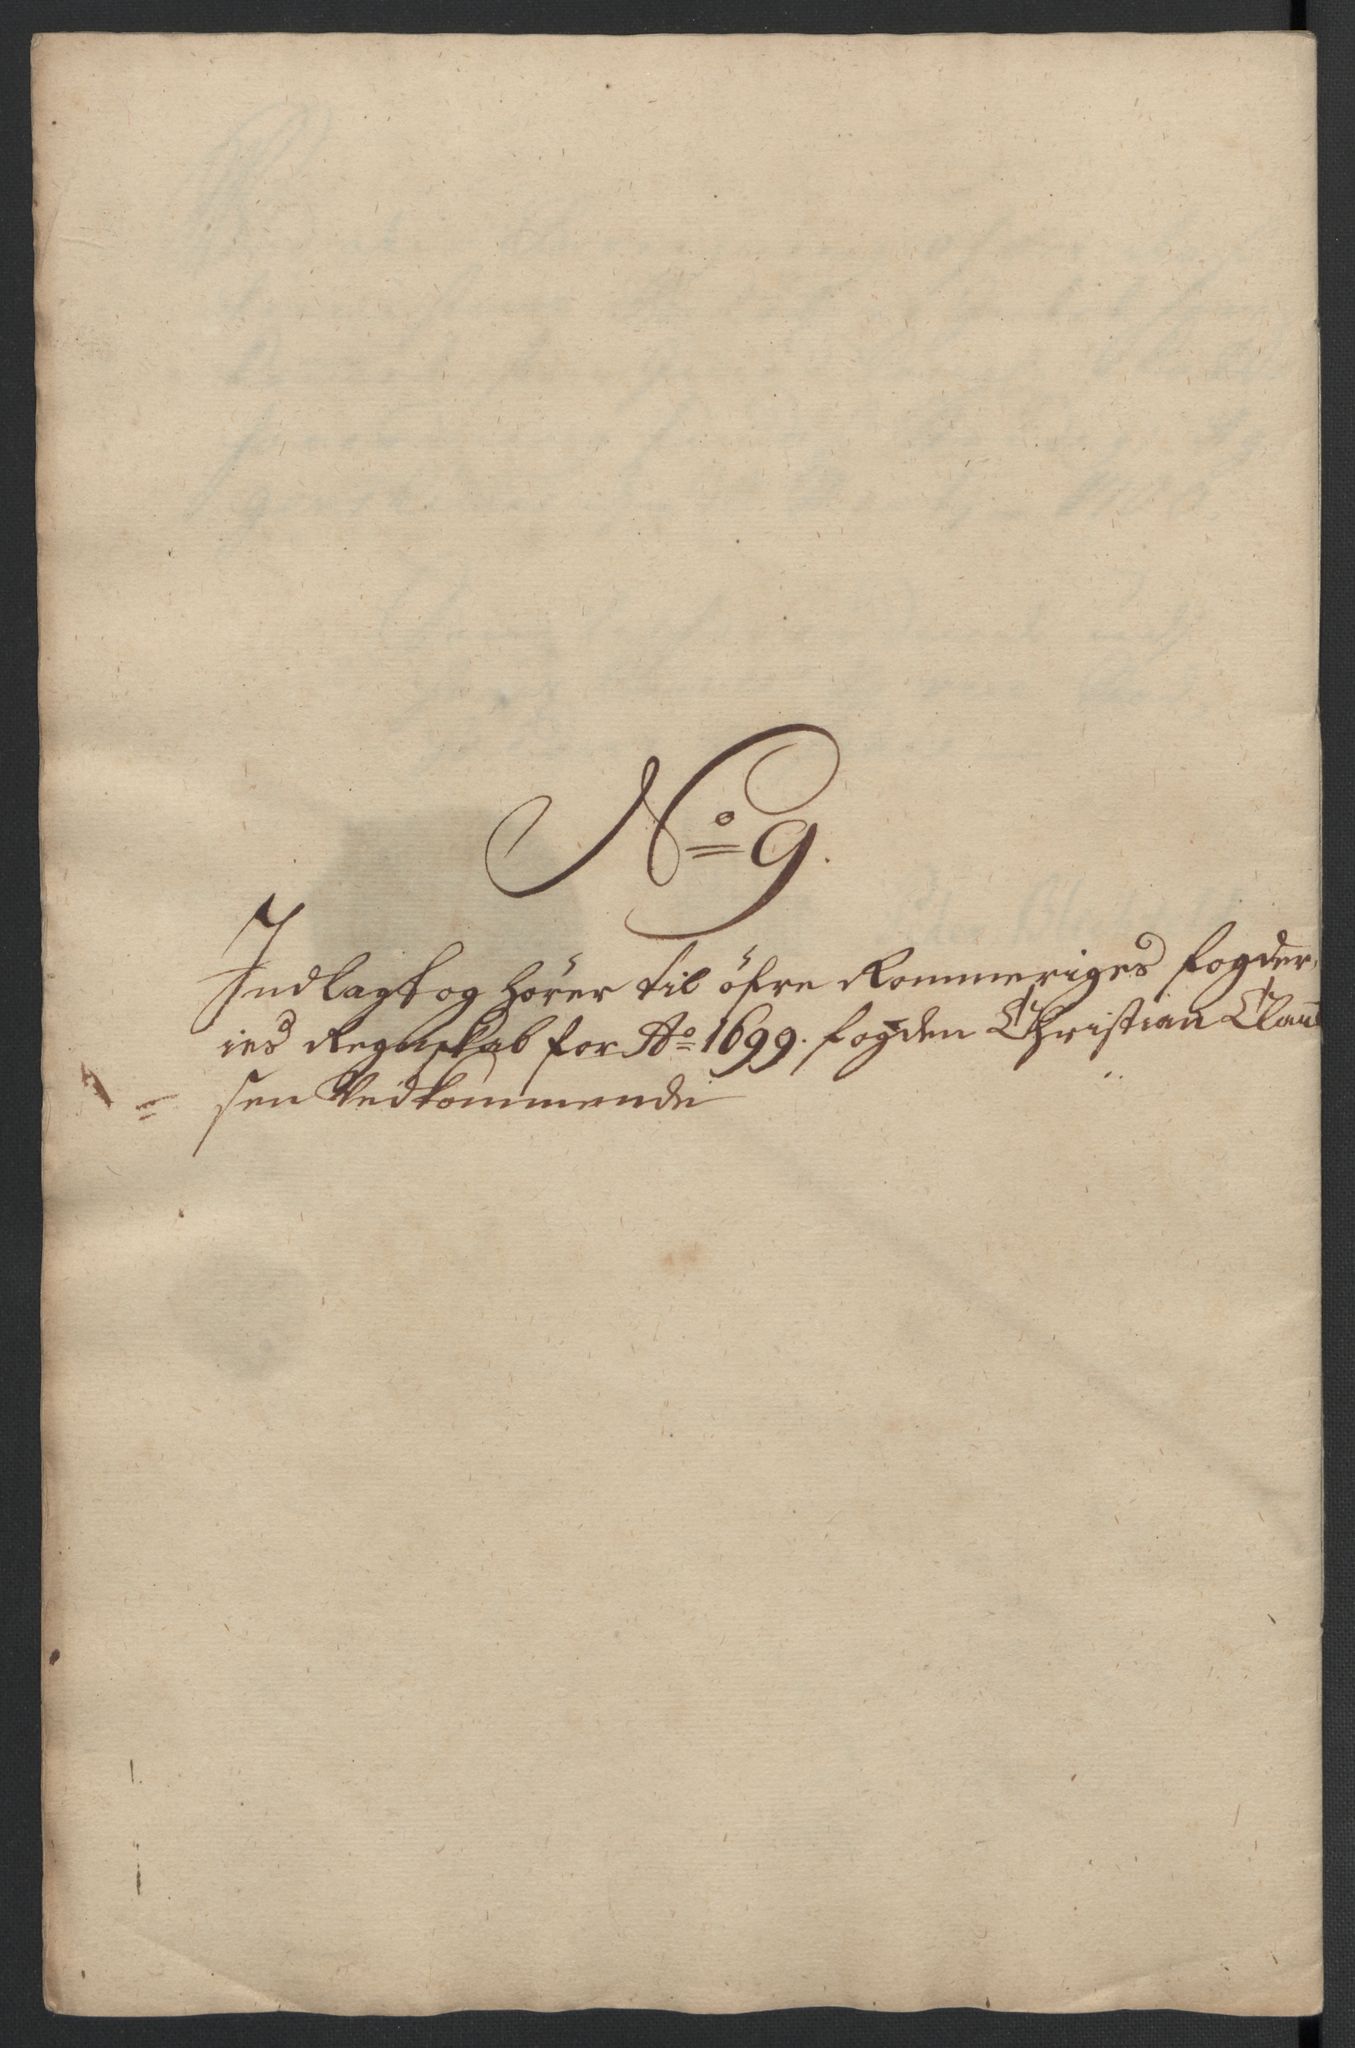 No 9.
Indlagt og hører til øfre Rommeriges fogder,
ies Regnskab for Ao 1699. fogden Christian Clau
sen Vedkommende